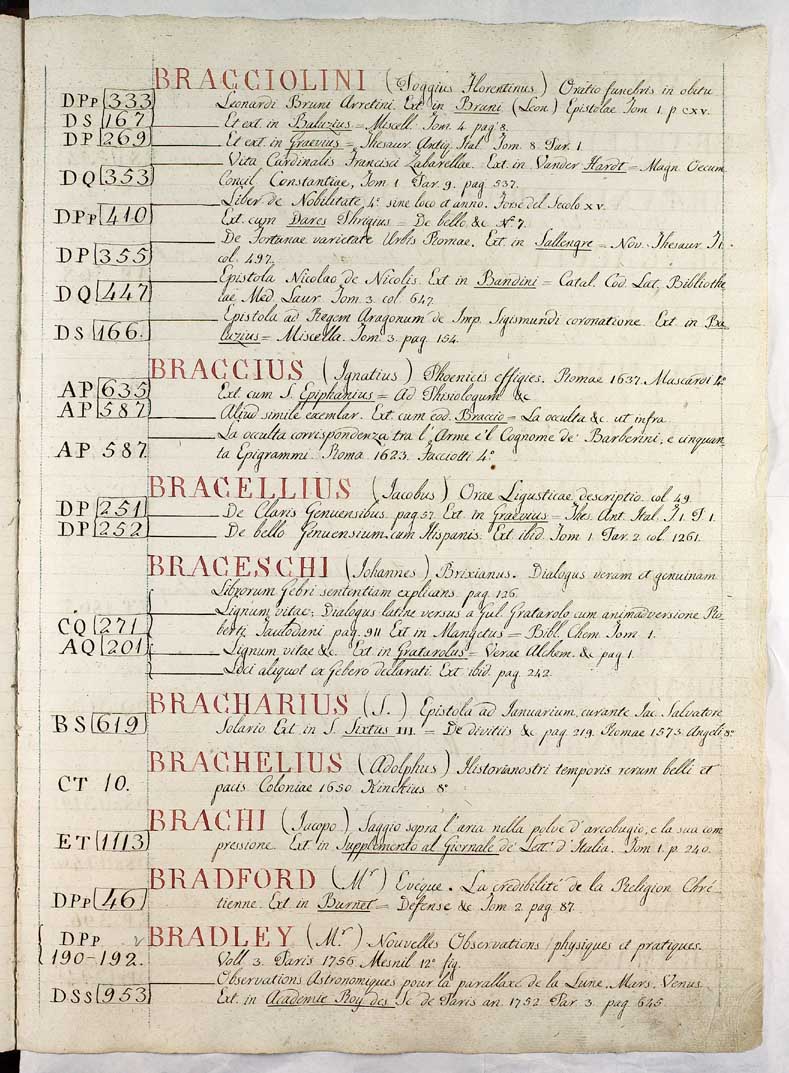 BRACCIOLINI (Poggius Florentinus) Oratio funebris in obitu
DPp 333 Leonardi Bruni Arretini. Ext. in Bruni (Leon) Epistolae Tom 1. p. CXV.
DS 167 Et ext. in Baluzius = Miscell. Tom. 4. pag 8.
DP 269 Et ext. in Graevius = Thesaur. Antiq. Ital. Tom. 8. Par. 1
Vita Cardinalis Francisci Zabarellae. Ext. in Vander Hardt = Magn. Oecum.
DQ 353 Concil Constantiae, Tom 1. Par. 9. pag. 537.
Liber de Nobilitate 4.° sine loco et anno. Forse del Secolo XV.
DPp 410 Ext. cum Dares Phrigius = De bello &c N.° 7.
De Fortunae varietate Urbis Romae. Ext. in Sallengre = Nov. Thesaur. T. 1.
DP 355 col. 497.
Epistola Nicolao de Nicolis. Ext in Bandini = Catal. Cod. Lat. Bibliothe
DQ 447 cae Med. Laur. Tom. 3. col. 647.
Epistola ad Regem Aragonum de Imp. Sigismundi coronatione. Ext. in Ba-
DS 166. luzius = Miscella. Tom. 3. pag. 154.
BRACCIUS (Ignatius) Phoenicis effigies. Romae 1637. Mascardi 4.°
AP 635 Ext cum S. Epiphanius = Ad Phisiologum &c
AP 587 Aliud simile exemlar. Ext. cum eod. Braccio = La occulta &c. ut infra.
La occulta corrispondenza tra l'Arme e'l Cognome de' Barberini; e cinquan
AP 587 ta Epigrammi. Roma 1623. Facciotti 4.°
BRACELLIUS (Jacobus) Orae Ligusticae descriptio. col. 49.
DP 251 De Claris Genuensibus. pag. 57. Ext. in Graevius = Thes. Ant. Ital. T. 1. P. 1.
DP 252 De bello Genuensium cum Hispanis. Ext ibid. Tom 1. Par. 2. col. 1261.
BRACESCHI (Iohannes) Brixianus. Dialogus veram et genuinam
Librorum Gebri sententiam explicans. pag. 126.
Lignum vitae; Dialogus latine versus a Gul. Gratarolo cum animadversione Ro
CQ 271 berti Tauladani. pag. 911 Ext in Mangetus = Bibl. Chem. Tom 1.
AQ 201 Lignum vitae &c. Ext. in Gratarolus = Verae Alchem. &c pag 1.
Loci aliquot ex Gebero declarati. Ext ibid. pag. 242.
BRACHARIUS (S.) Epistola ad Ianuarium, curante Iac. Salvatore
BS 619 Solario Ext. in S. Sixtus III. = De divitiis &c pag. 219. Romae 1573. Angeli 8.°
BRACHELIUS (Adolphus) Historia nostri temporis rerum belli et
CT 10. pacis Coloniae 1650. Kinckius 8.°
BRACHI (Iacopo) Saggio sopra l'aria nella polve d'arcobugio, e la sua com
ET 1113 pressione. Ext. in Supplemento al Giornale de' Lett. d'Italia. Tom 1. p. 240.
BRADFORD (M.r) Evéque. La crédibilité de la Religion Chré
DPp 46 tienne. Ext. in Burnet = Défense &c Tom 2. pag. 87.
DPp BRADLEY (M.r) Nouvelles Observations physiques et pratiques.
190-192. Voll 3. Paris 1756. Mesnil 12.° fig.
Observations Astronomiques pour la parallaxe de la Lune. Mars. Venus
DSs 953 Ext. in Academie Roy. des Sc de Paris an 1752 Par 3. pag 645.